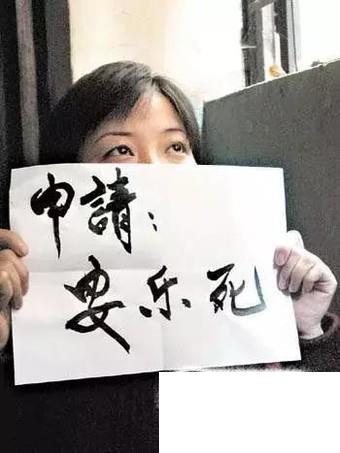 申請：
安乐死